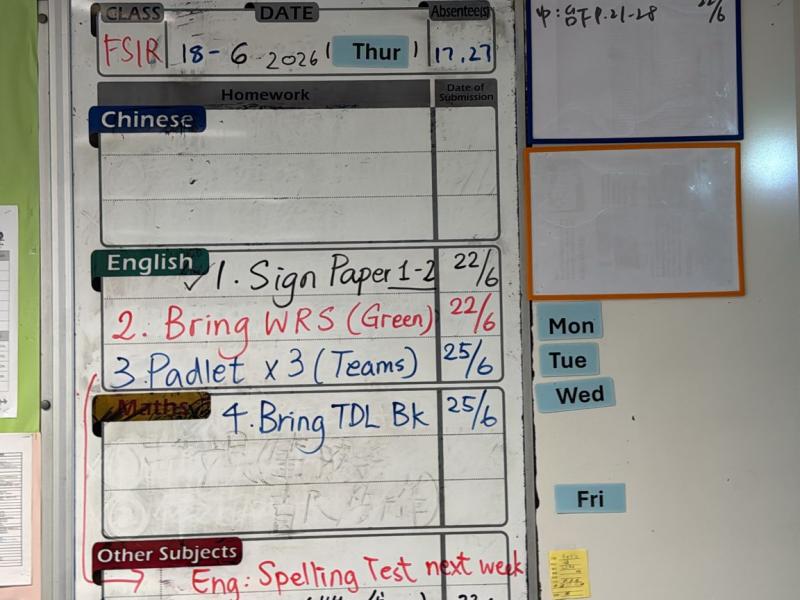 CLASS DATE Absentee(s)
FSIR 18-6-2026 (Thur) 17,27
Homework Date of Submission
Chinese
English
✓1. Sign Paper 1-2 22/6
2. Bring WRS (Green) 22/6
3. Padlet x 3 (Teams) 25/6
Maths
4. Bring TDL Bk 25/6
Other Subjects
→ Eng: Spelling Test next week
P.21-28 22/6
Mon
Tue
Wed
Fri